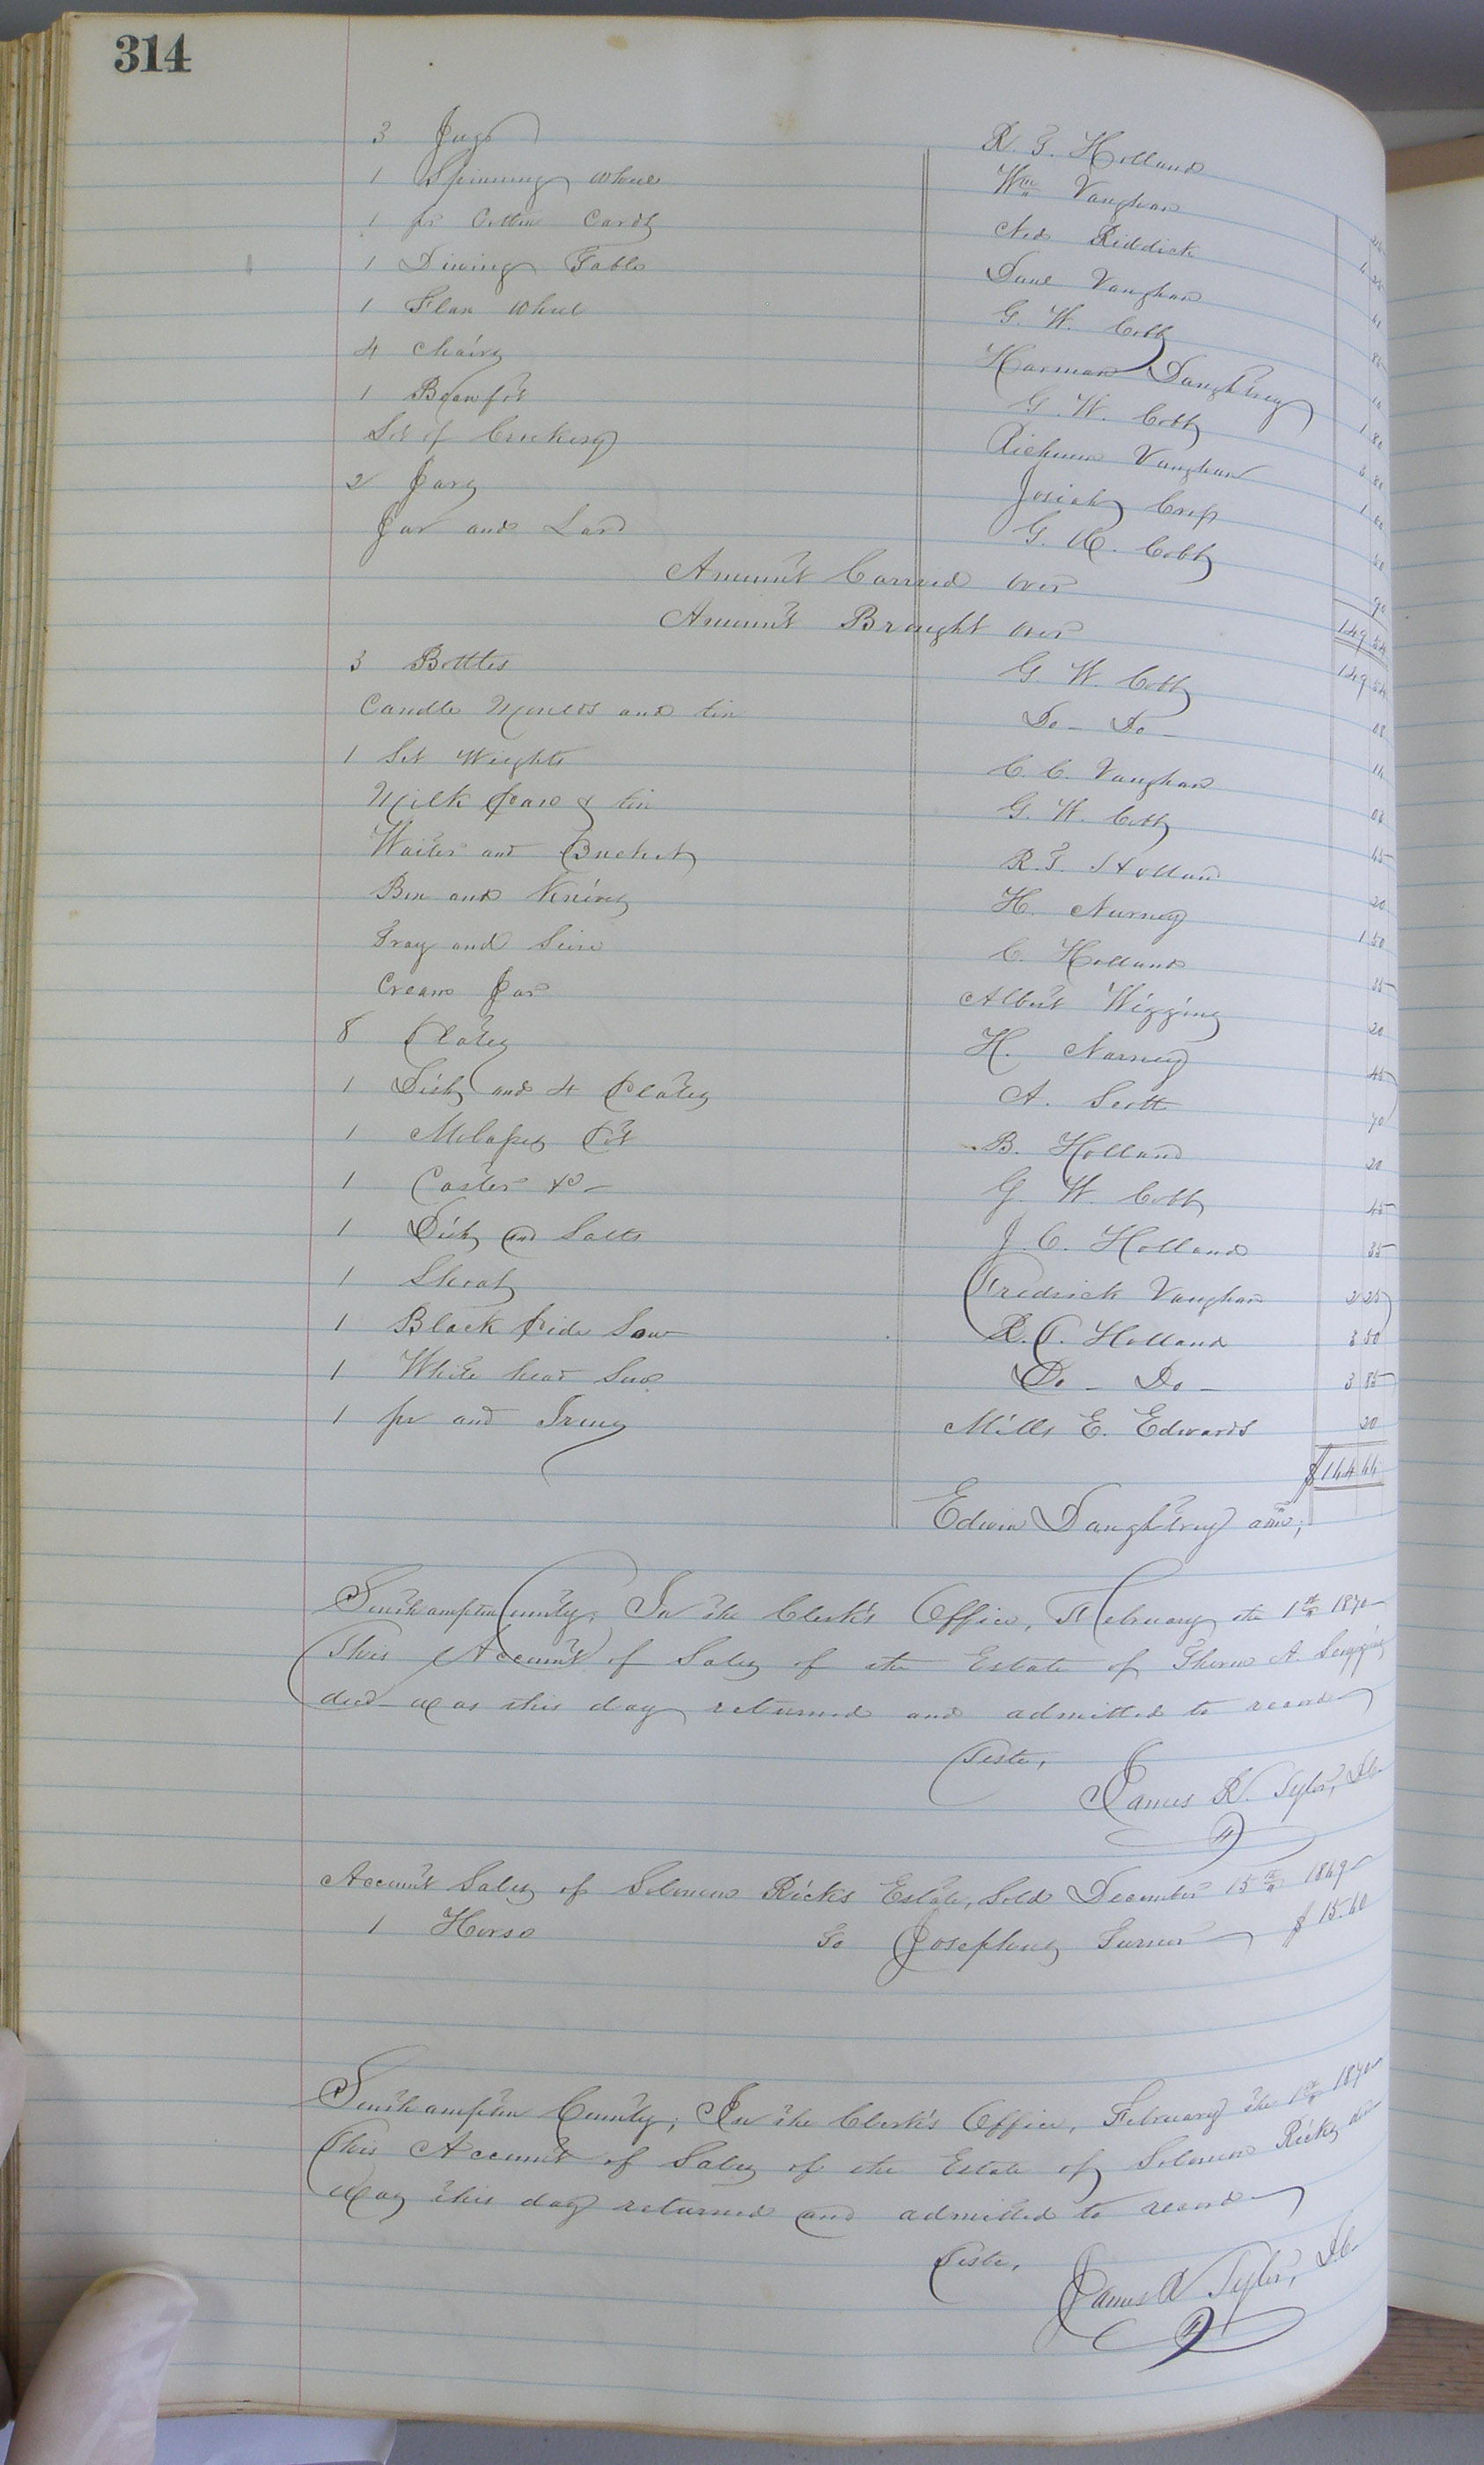 314
3 Jugs R. T. Holland 25
1 Spinning wheel Wm Vaughan 25
1 pr Cotten Cards Ned Riddick
1 Dining Table Danl Vaughan 85
1 Flax Wheel G. W. Cobb
4 Chairs Harman Daughtrey 1 80
1 Beaufet G. W. Cobb
Set of Crockery Richmon Vaughan 1 00
2 Jars Josiah Cross 50
Jar and Lard G. W. Cobb 90
Amount Carried over 129 54
Amount Brought over 129 54
3 Bottles G. W. Cobb 08
Candle Moulds and tin Do - Do -
1 Set Weights C. C. Vaughan 03
Milk Pan & tin G. W. Cobb 45
Waiter and Bucket R. T. Holland 20
Box and Knives H. Nurney 1 50
Tray and C. Holland 25
Cream Jar Albert Wiggins 20
8 Plates H. Nurney 45
1 Dish and 4 Plates A. Scott 70
1 Molasses Pot B. Holland 20
1 Caster &c - G. W. Cobb 45
1 Dish and Salts J. C. Holland 35
1 Shoat Fredrick Vaughan 2 25
1 Black side Sow R. T. Holland 3 50
1 White head Sow Do - Do - 3 85
1 pr and Irons Mills E. Edwards 20
$144 44
Edwin Daughtrey adm;
Southampton County; In the Clerk's Office, February the 1st 1870
This Account of Sales of the Estate of A.
decd was this day returned and admitted to record
Teste,
James R. Tyler, D.C.
Account Sales of Solomon Ricks Estate, Sold December 15th 1869
1 Horse To Josephus Turner $15.60
Southampton County; In the Clerk's Office, February the 1st 1870
This Account of Sales of the Estate of Solomon Ricks decd
was this day returned and admitted to record
Teste,
James R Tyler, D.C.